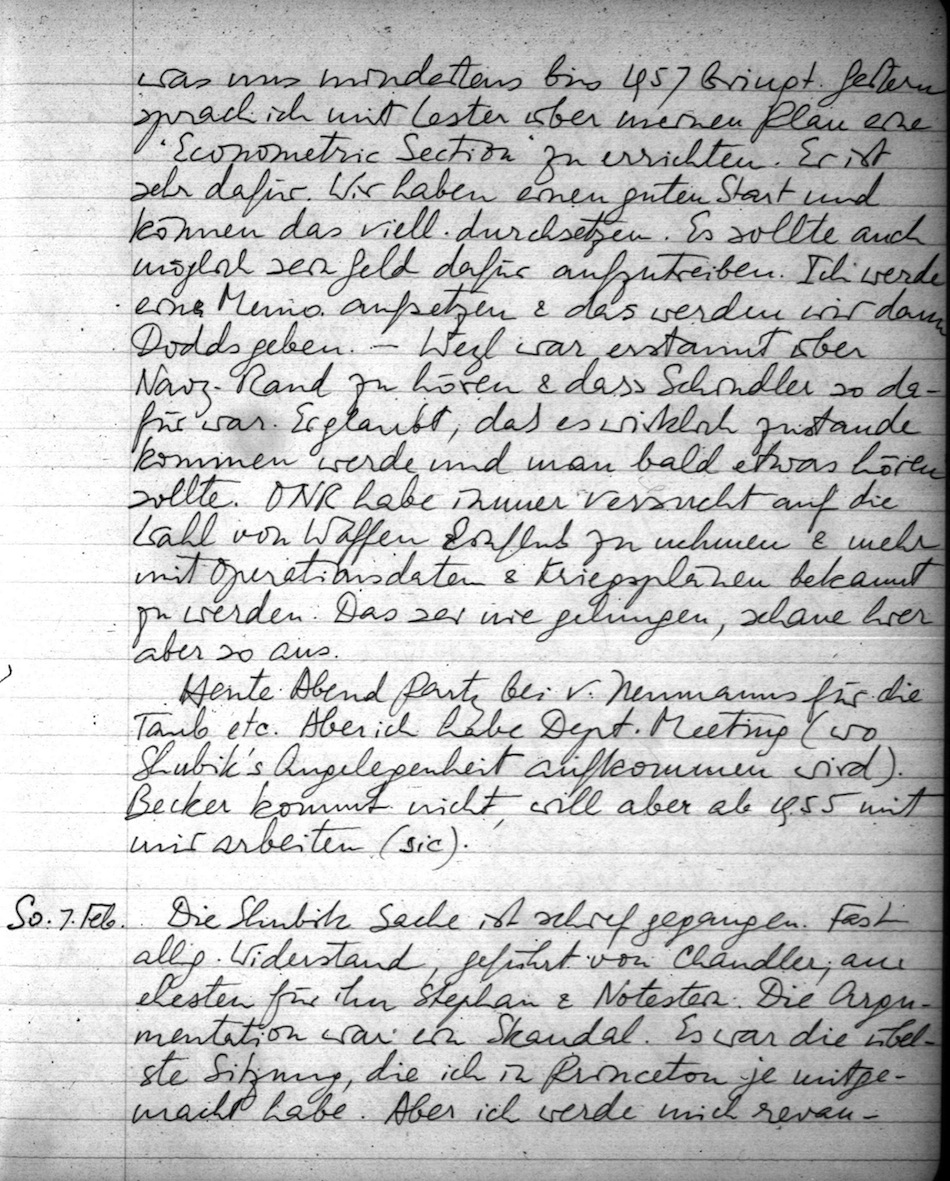 was uns mindestens bis 1957 bringt. Gestern
sprach ich mit Lester über meinen Plan eine
'Econometric Section' zu errichten. Er ist
sehr dafür. Wir haben einen guten Start und
können das viell. durchsetzen. Es sollte auch
möglich sein Geld dafür aufzutreiben. Ich werde
eine Memo. aufsetzen & das werden wir dann
Dodds geben. – Weyl war erstaunt über
Navy-Rand zu hören & dass Schindler so da-
für war. Er glaubt, daß es wirklich zustande
kommen werde und man bald etwas hören
sollte. ONR habe immer versucht auf die
Wahl von Waffen Einfluß zu nehmen & mehr
mit Operationsdaten & Kriegsplänen bekannt
zu werden. Das sei nie gelungen, schaue hier
aber so aus.
Heute Abend Party bei v. Neumanns für die
Taub etc. Aber ich habe Dept. Meeting (wo
Shubik's Angelegenheit aufkommen wird).
Becker kommt nicht, will aber ab 1955 mit
mir arbeiten (sic).
So. 7. Feb. Die Shubik Sache ist schief gegangen. Fast
allg. Widerstand, geführt von Chandler; am
ehesten für ihn Stephan & Notestein. Die Argu-
mentation war ein Skandal. Es war die übel-
ste Sitzung, die ich in Princeton je mitge-
macht habe. Aber ich werde mich revan-